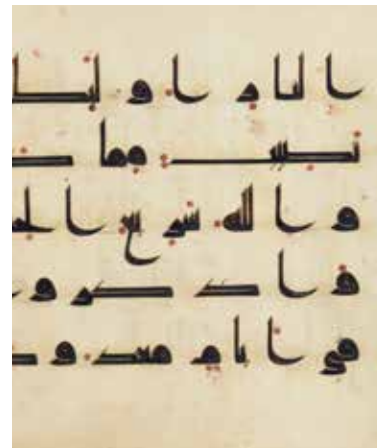 النار اولئك
نصيب مما
والله سريع الحـ
واذكرو
في ايام معدود